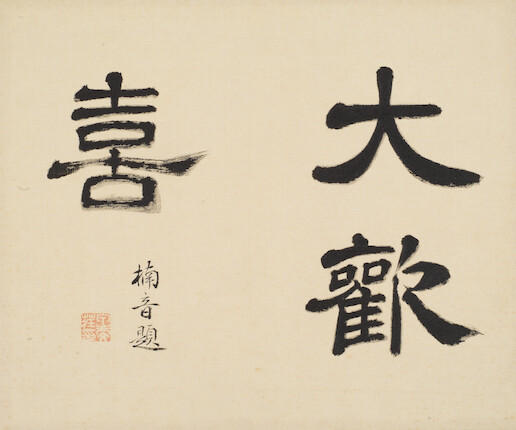 大歡
喜
楠音題